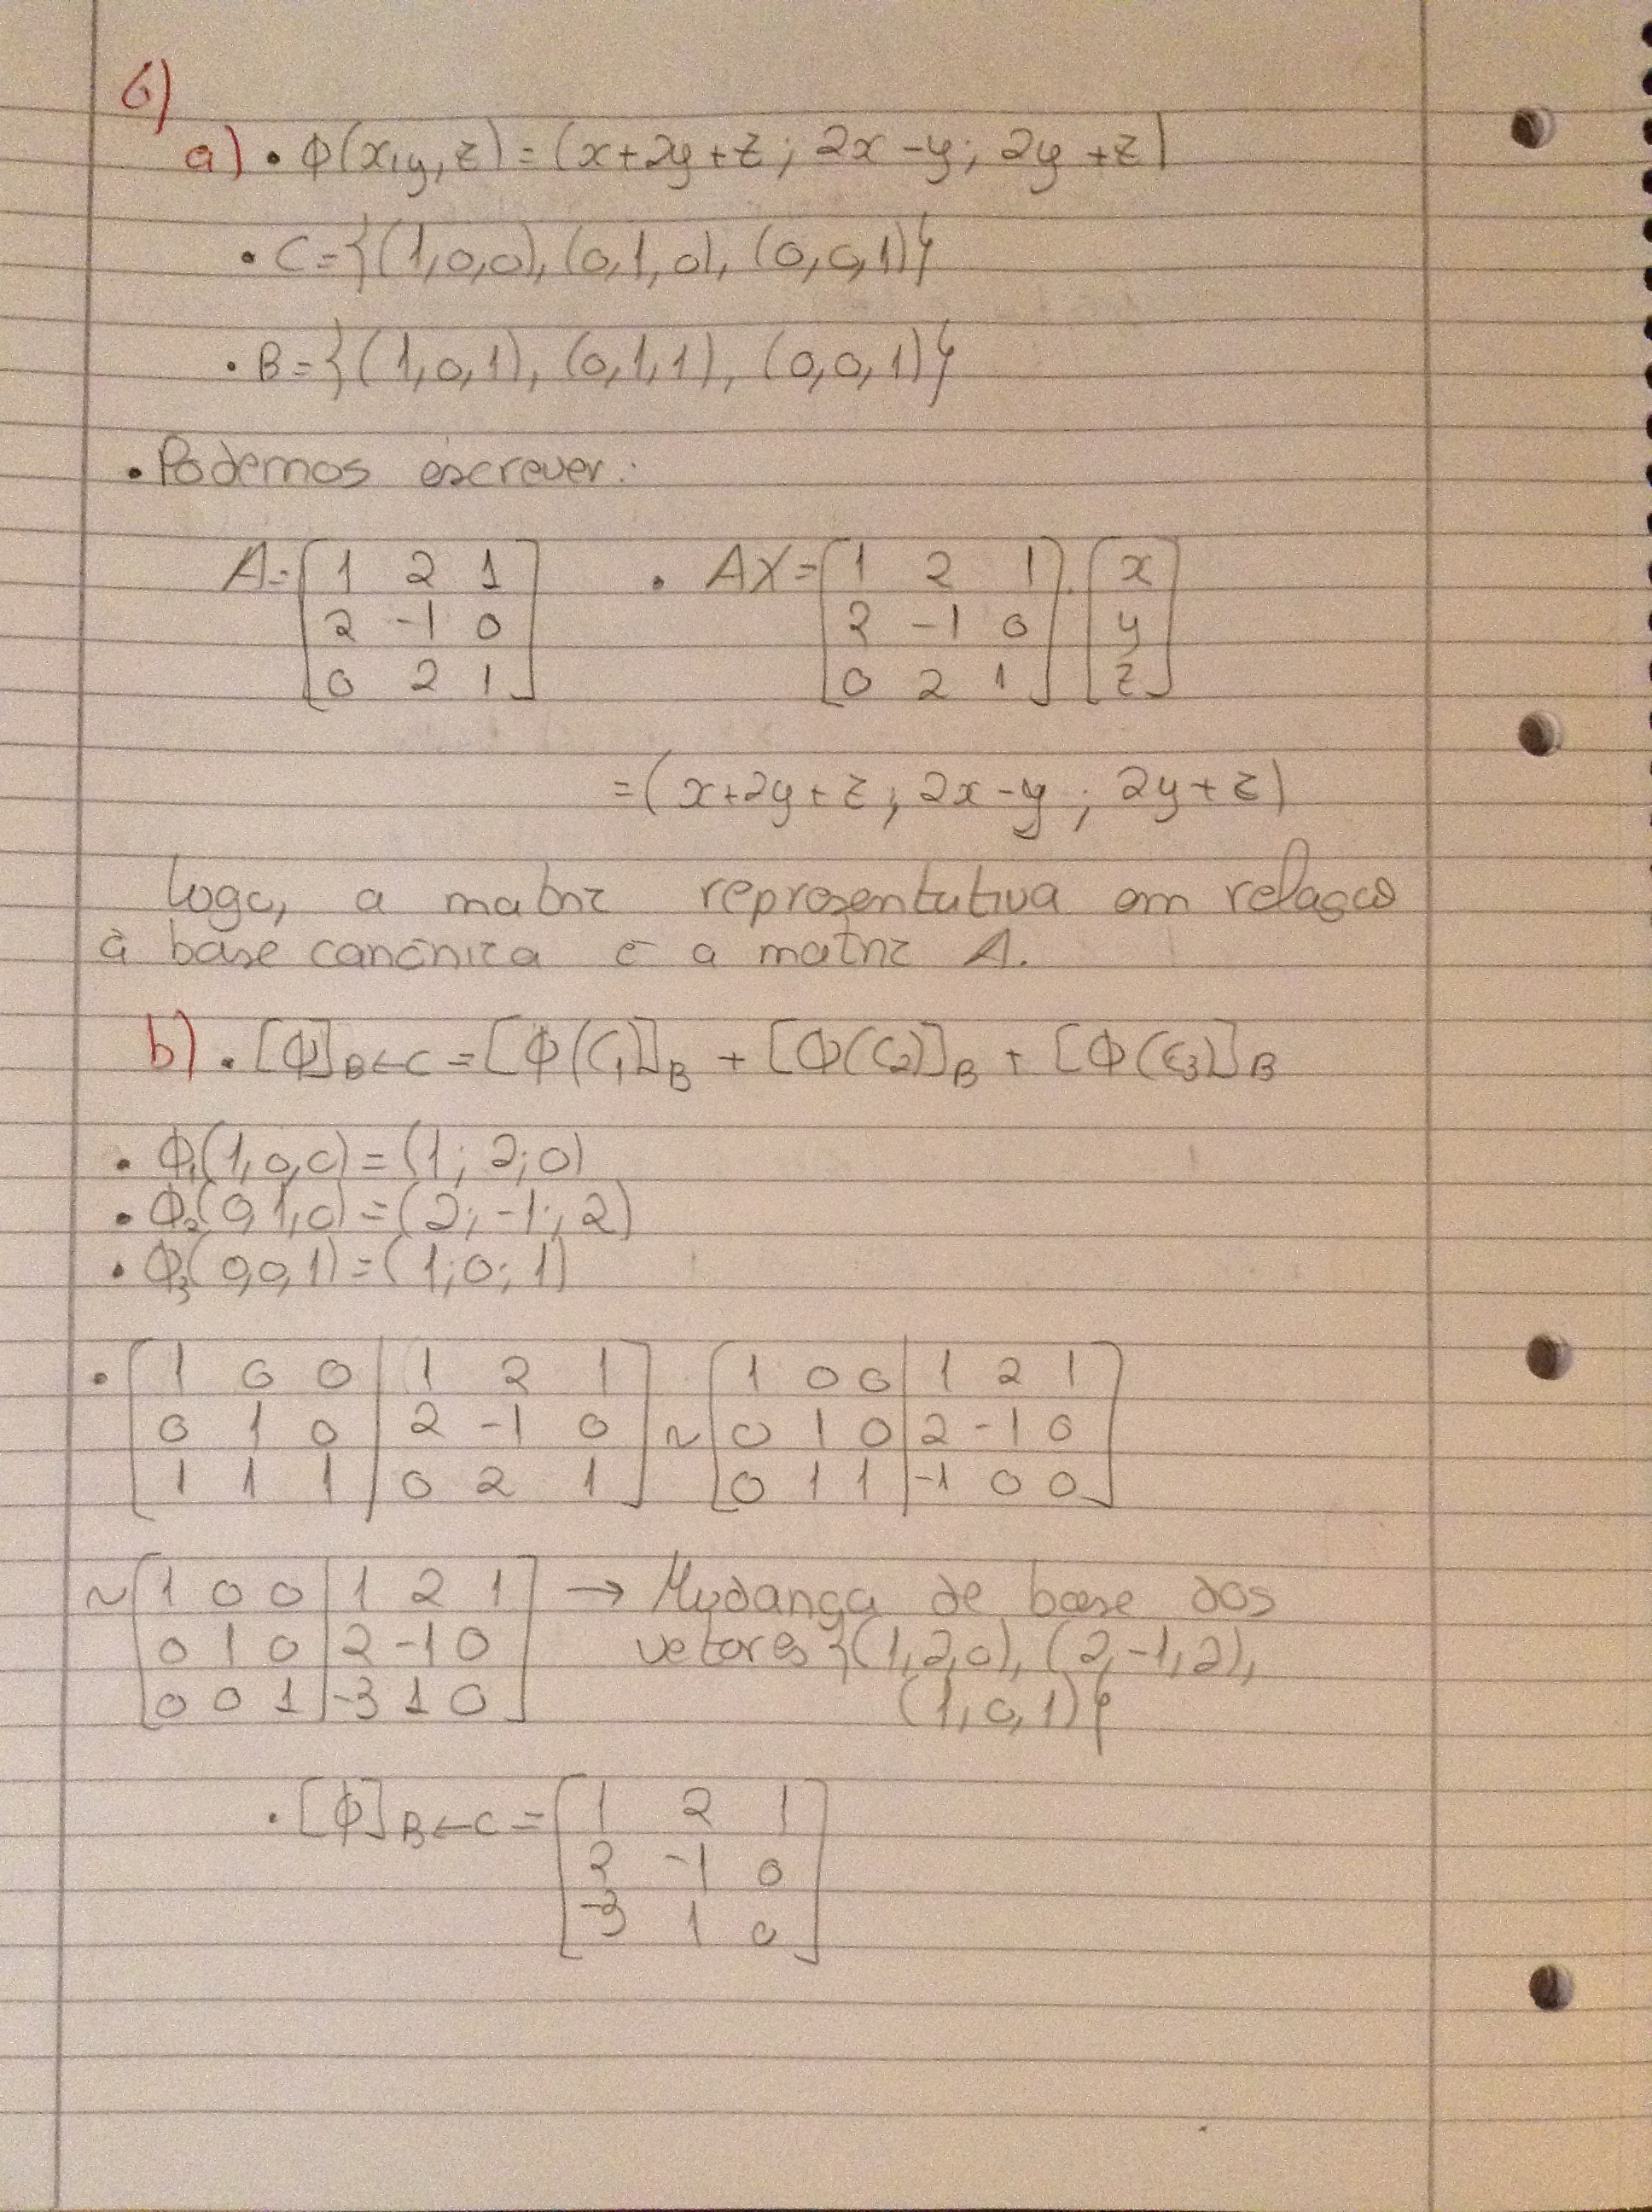 6)
a) • Φ(x,y,z) = (x+2y+z ; 2x-y ; 2y+z)
• C={(1,0,0), (0,1,0), (0,0,1)}
• B={(1,0,1), (0,1,1), (0,0,1)}
• Podemos escrever:
A= [1 2 1 • AX= [1 2 1] . [x
2 -1 0 2 -1 0 y
0 2 1] 0 2 1] z]
=(x+2y+z ; 2x-y ; 2y+z)
logo, a matriz representativa em relação
à base canônica é a matriz A.
b) • [Φ]B←C = [Φ(C1)]B + [Φ(C2)]B + [Φ(C3)]B
• Φ1(1,0,0)=(1; 2; 0)
• Φ2(0,1,0)=(2; -1; 2)
• Φ3(0,0,1)=(1; 0; 1)
• [1 0 0 | 1 2 1] [1 0 0 | 1 2 1]
0 1 0 | 2 -1 0 ~ 0 1 0 | 2 -1 0
1 1 1 | 0 2 1 0 1 1 | -1 0 0
~ [1 0 0 | 1 2 1] → Mudança de base dos
0 1 0 | 2 -1 0 vetores {(1,2,0), (2,-1,2),
0 0 1 | -3 1 0 (1,0,1)}
• [Φ]B←C = [1 2 1
2 -1 0
-3 1 0]